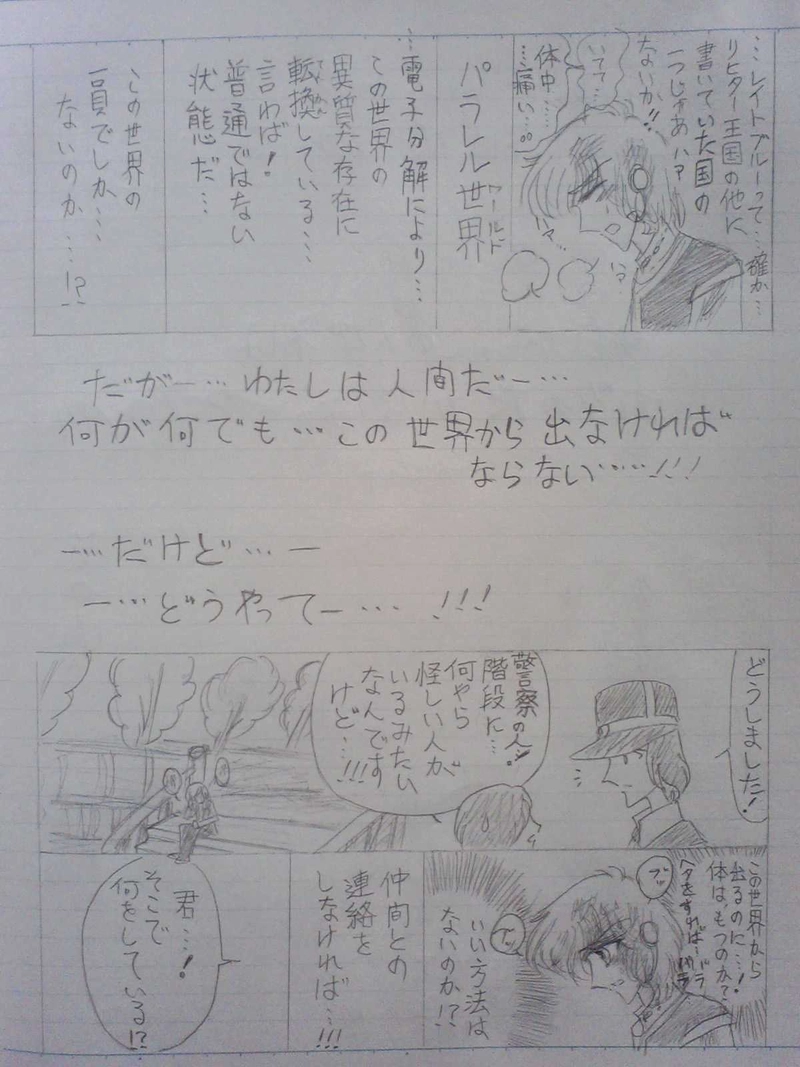 …レイトブルーって…確か…
リヒター王国の他に
書いていた国の
一つじゃあ
ないか!!
いてて…
体中……
…痛い…。。
パラレル世界
ワールド
…電子分解により…
この世界の
異質な存在に
転換している…
言わば!
普通ではない
状態だ…
この世界の
一員でしか…
ないのか…!?
だがー…わたしは人間だー…
何が何でも…この世界から出なければ
ならない……!!!
ー…だけど…ー
ー…どうやってー…!!!
どうしました!
警察の人!
階段に…
何やら
怪しい人が
いるみたい
なんです
けど…!!!
この世界から
出るのに…!
体は、もつのか?
ヘタをすれば…バラ
バラ
ブツ
ブツ
いい方法は
ないのか!?
仲間との
連絡を
しなければ…!!!
君…!
そこで
何をしている!?